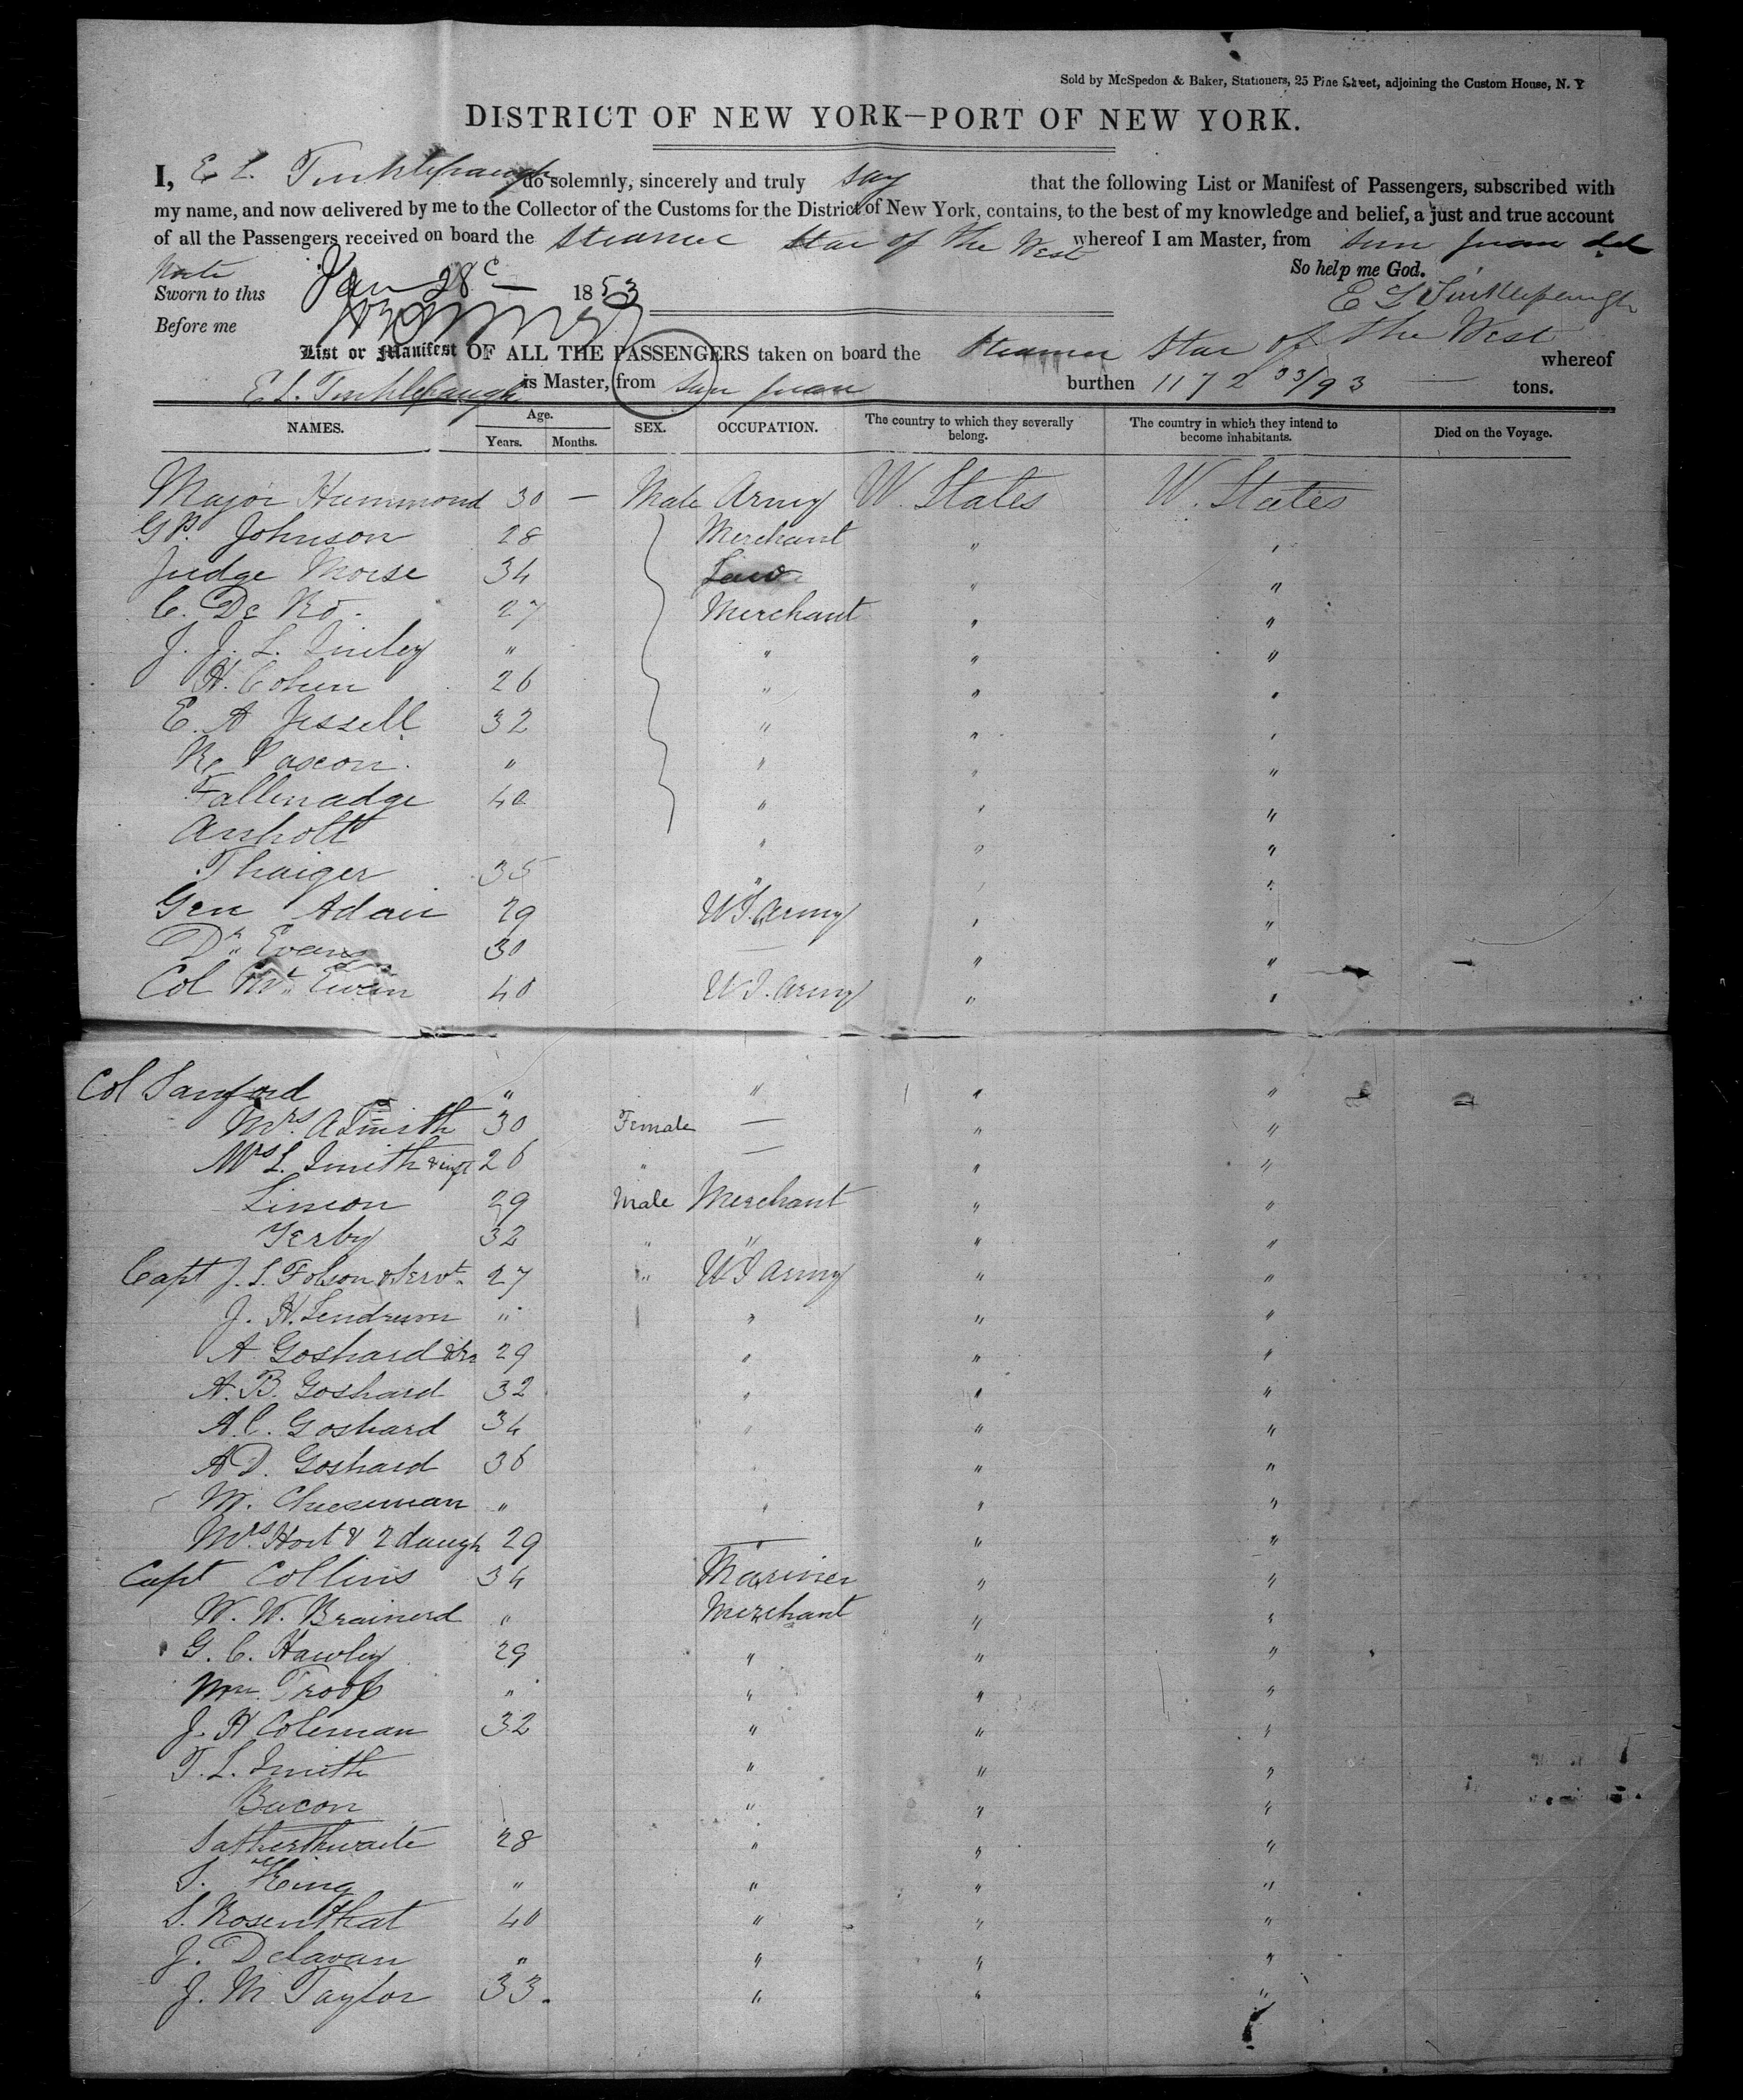 Sold by McSpedon & Baker, Stationers, 25 Pine Street, adjoining the Custom House, N. Y
DISTRICT OF NEW YORK—PORT OF NEW YORK.
I, E L. Tinklepaugh do solemnly, sincerely and truly say that the following List or Manifest of Passengers, subscribed with
my name, and now delivered by me to the Collector of the Customs for the District of New York, contains, to the best of my knowledge and belief, a just and true account
of all the Passengers received on board the Steamer Star of the West whereof I am Master, from San Juan del
Norte So help me God.
Sworn to this Jan 28 1853 E L Tinklepaugh
Before me
List or Manifest OF ALL THE PASSENGERS taken on board the Steamer Star of the West whereof
E L. Tinklepaugh is Master, from San Juan burthen 1172 33/93 tons.
NAMES. Age. Years. Months. SEX. OCCUPATION. The country to which they severally belong. The country in which they intend to become inhabitants. Died on the Voyage.
Major Hammond 30 — Male Army U. States U. States
G P. Johnson 28 Merchant " "
Judge Morse 34 Law " "
C. De Ro 27 Merchant " "
J. J. L. " " " "
H. Cohen 26 " " "
E. A Jessell 32 " " "
" " " "
Tallmadge 40 " " "
Anholt " " "
Thaiger 35 " " "
Gen Adair 29 U S. Army " "
Dr. Evans 30 — " "
Col Mc Ewin 40 U S. Army " "
Col Sanford " " " "
Mrs. A Smith 30 Female — " "
Mrs L. Smith & inft 26 " — " "
Simeon 29 Male Merchant " "
Yerby 32 " " " "
Capt J. L. Folsom & Servt. 27 " U S Army " "
J. H. " " " "
A Goshard 29 " " "
A. B. Goshard 32 " " "
A. C. Goshard 34 " " "
A D. Goshard 36 " " "
M. Cheeseman " " " "
Mrs. Hort & 2 daugh 29 — " "
Capt Collins 34 Mariner " "
W. W. Brainerd " Merchant " "
G. C. Hawley 29 " " "
Troop " " " "
J. H Coleman 32 " " "
T. L. Smith " " "
Bacon " " "
Satherthwaite 28 " " "
S. King " " " "
S. Rosenthat 40 " " "
J. Delavan " " " "
J. M Taylor 33. " " "